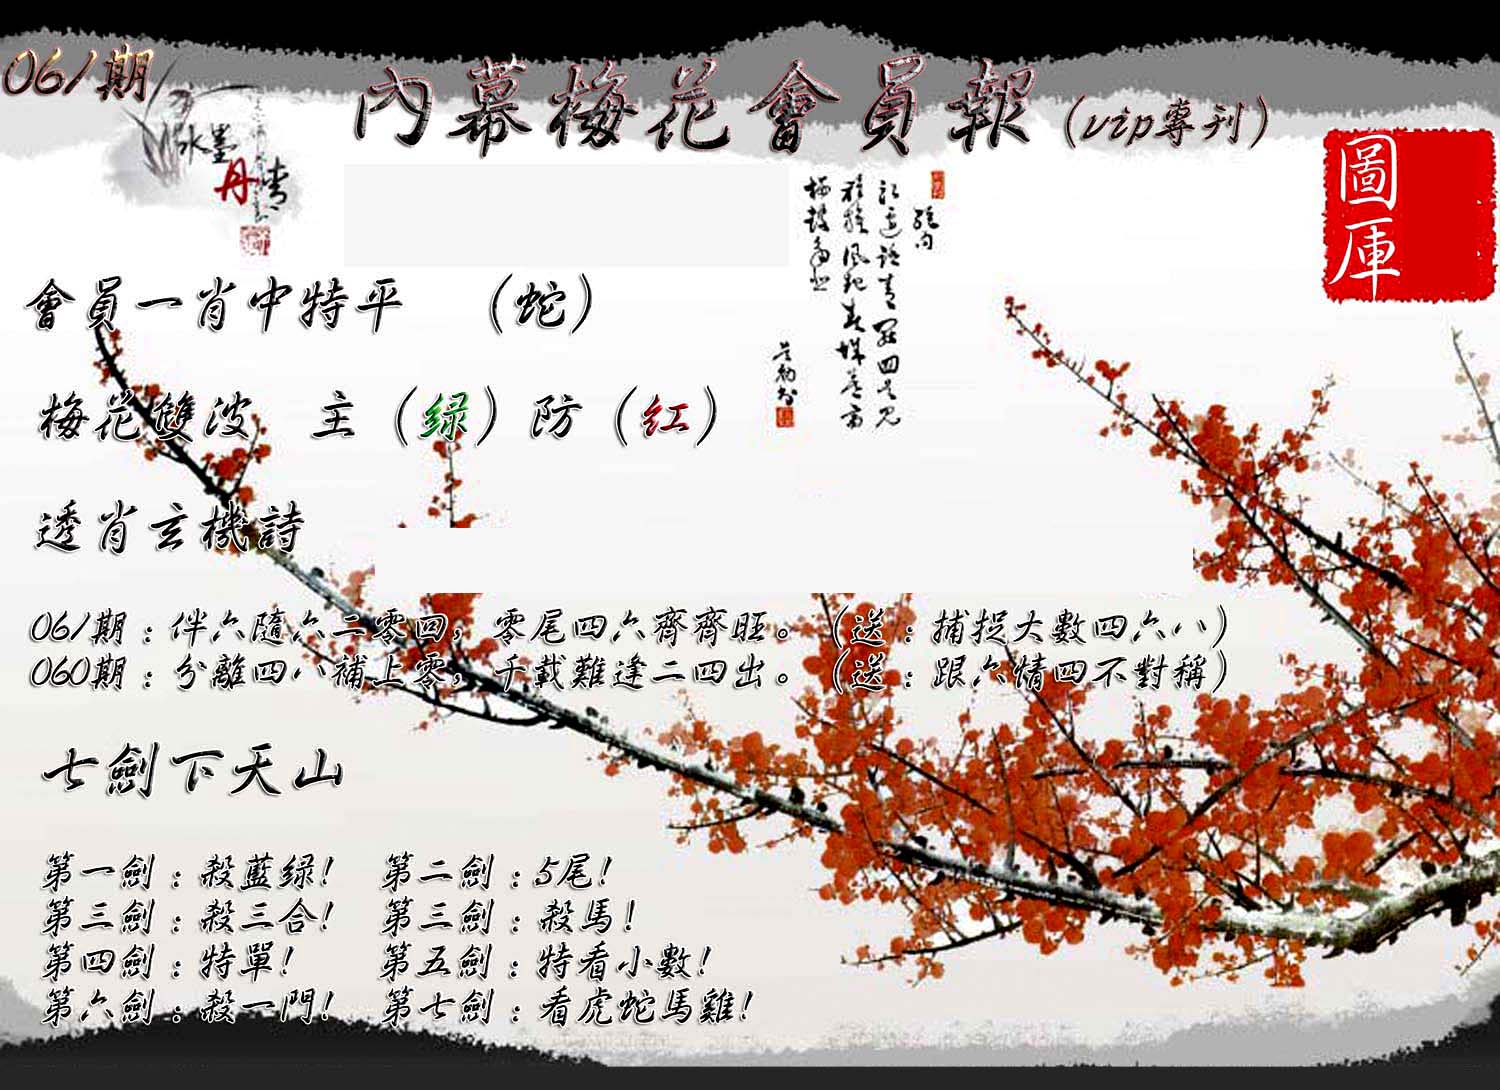 061期
內幕梅花會員報(vip專刊)
水墨
丹青
圖
庫
絕句
會員一肖中特平 (蛇)
梅花雙波 主(绿)防(红)
透肖玄機詩
061期:伴六隨六二零四,零尾四六齊齊旺。(送:捕捉大數四六八)
060期:分離四八補上零,千載難逢二四出。(送:跟六情四不對稱)
七劍下天山
第一劍:殺藍绿! 第二劍:5尾!
第三劍:殺三合! 第三劍:殺馬!
第四劍:特單! 第五劍:特看小數!
第六劍:殺一門! 第七劍:看虎蛇馬雞!